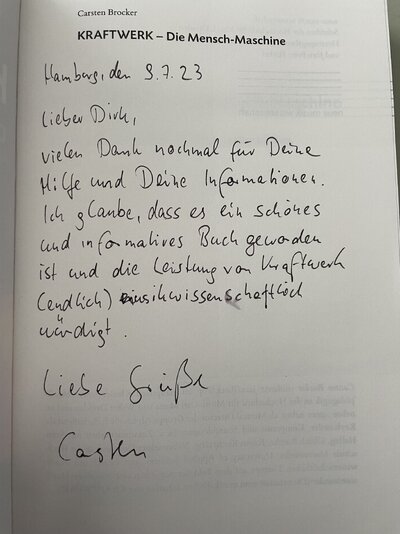 Carsten Brocker
KRAFTWERK – Die Mensch-Maschine
Hamburg, den 9.7.23
Lieber Dirk,
vielen Dank nochmal für Deine
Hilfe und Deine Informationen.
Ich glaube, dass es ein schönes
und informatives Buch geworden
ist und die Leistung von Kraftwerk
(endlich) musikwissenschaftlich
würdigt.
Liebe Grüße
Carsten